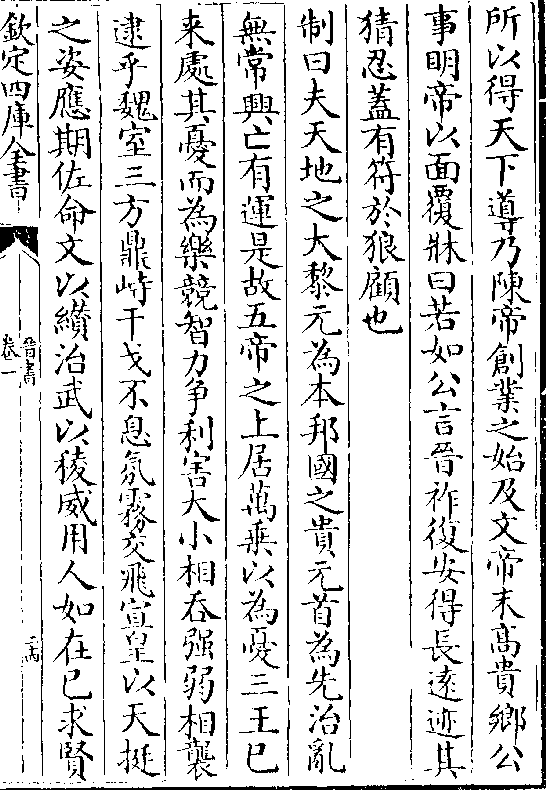 所以得天下導乃陳帝創業之始及文帝末髙貴鄉公
事明帝以面覆牀曰若如公言晉祚復安得長逺迹其
猜忍蓋有符於狼顧也
制曰夫天地之大黎元為本邦國之貴元首為先治亂
無常興亡有運是故五帝之上居萬乗以為憂三王已
来處其憂而為樂競智力争利害大小相吞强弱相襲
逮乎魏室三方鼎峙干戈不息氛霧交飛宣皇以天挺
之姿應期佐命文以纉治武以稜威用人如在已求賢
欽定四庫全書
晉書
卷一